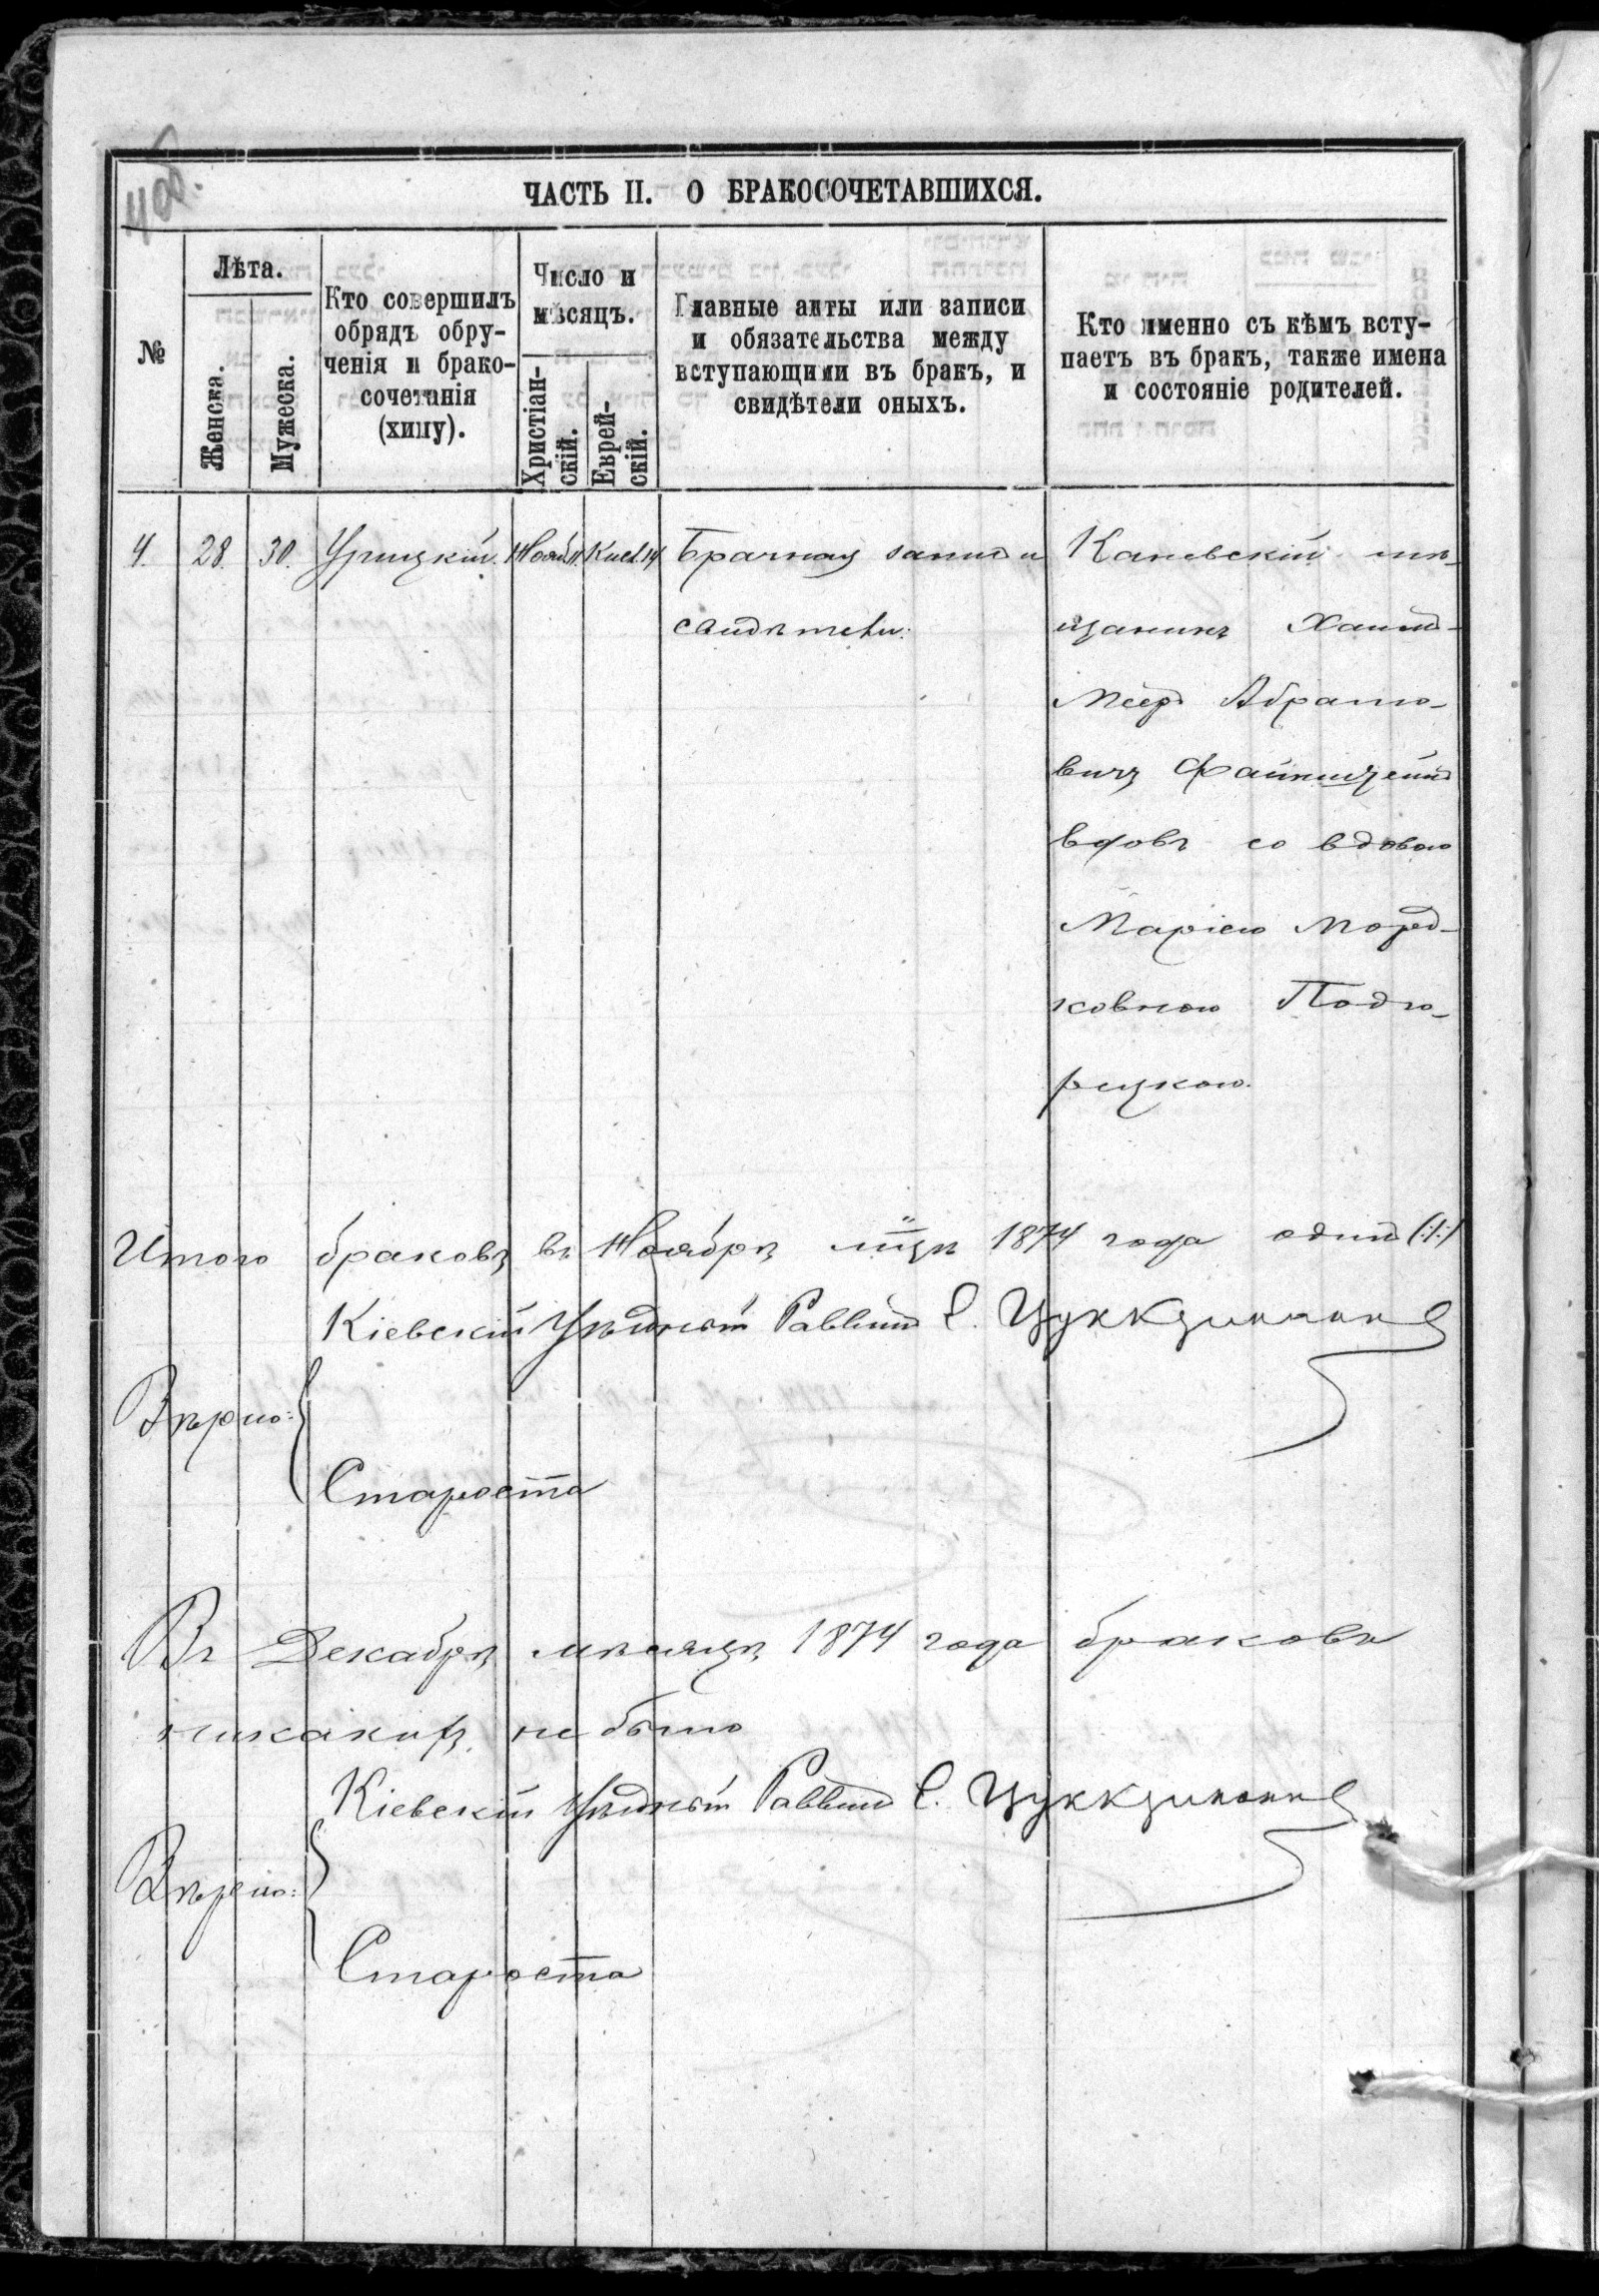 4об.
ЧАСТЬ II. О БРАКОСОЧЕТАВШИХСЯ.
№
Лѣта.
Женска.
Мужеска.
Кто совершилъ
обрядъ обру-
ченія и брако-
сочетанія
(хипу).
Число и
мѣсяцъ.
Христіан-
скій.
Еврей-
скій.
Главные акты или записи
и обязательства между
вступающими въ бракъ, и
свидѣтели оныхъ.
Кто именно съ кѣмъ всту-
паетъ въ бракъ, также имена
и состояніе родителей.
4. 28. 30. Урицкій. Нояб. 11. Кисл. 14 Брачная запись и
свидѣтели:
Каневскій мѣ-
щанинъ Хаимъ-
Мееръ Абрамо-
вичъ
вдовъ со вдовою
Маріею Морд-
ковною Подго-
рецкою.
Итого браковъ въ Ноябрѣ м̃цѣ 1874 года одинъ (:1:)
Кіевскій Уѣздный Раввинъ Е. Цуккерманъ
Вѣрно:
Староста
Въ Декабрѣ мѣсяцѣ 1874 года браковъ
никакихъ не было
Кіевскій Уѣздный Раввинъ Е. Цуккерманъ
Вѣрно:
Староста